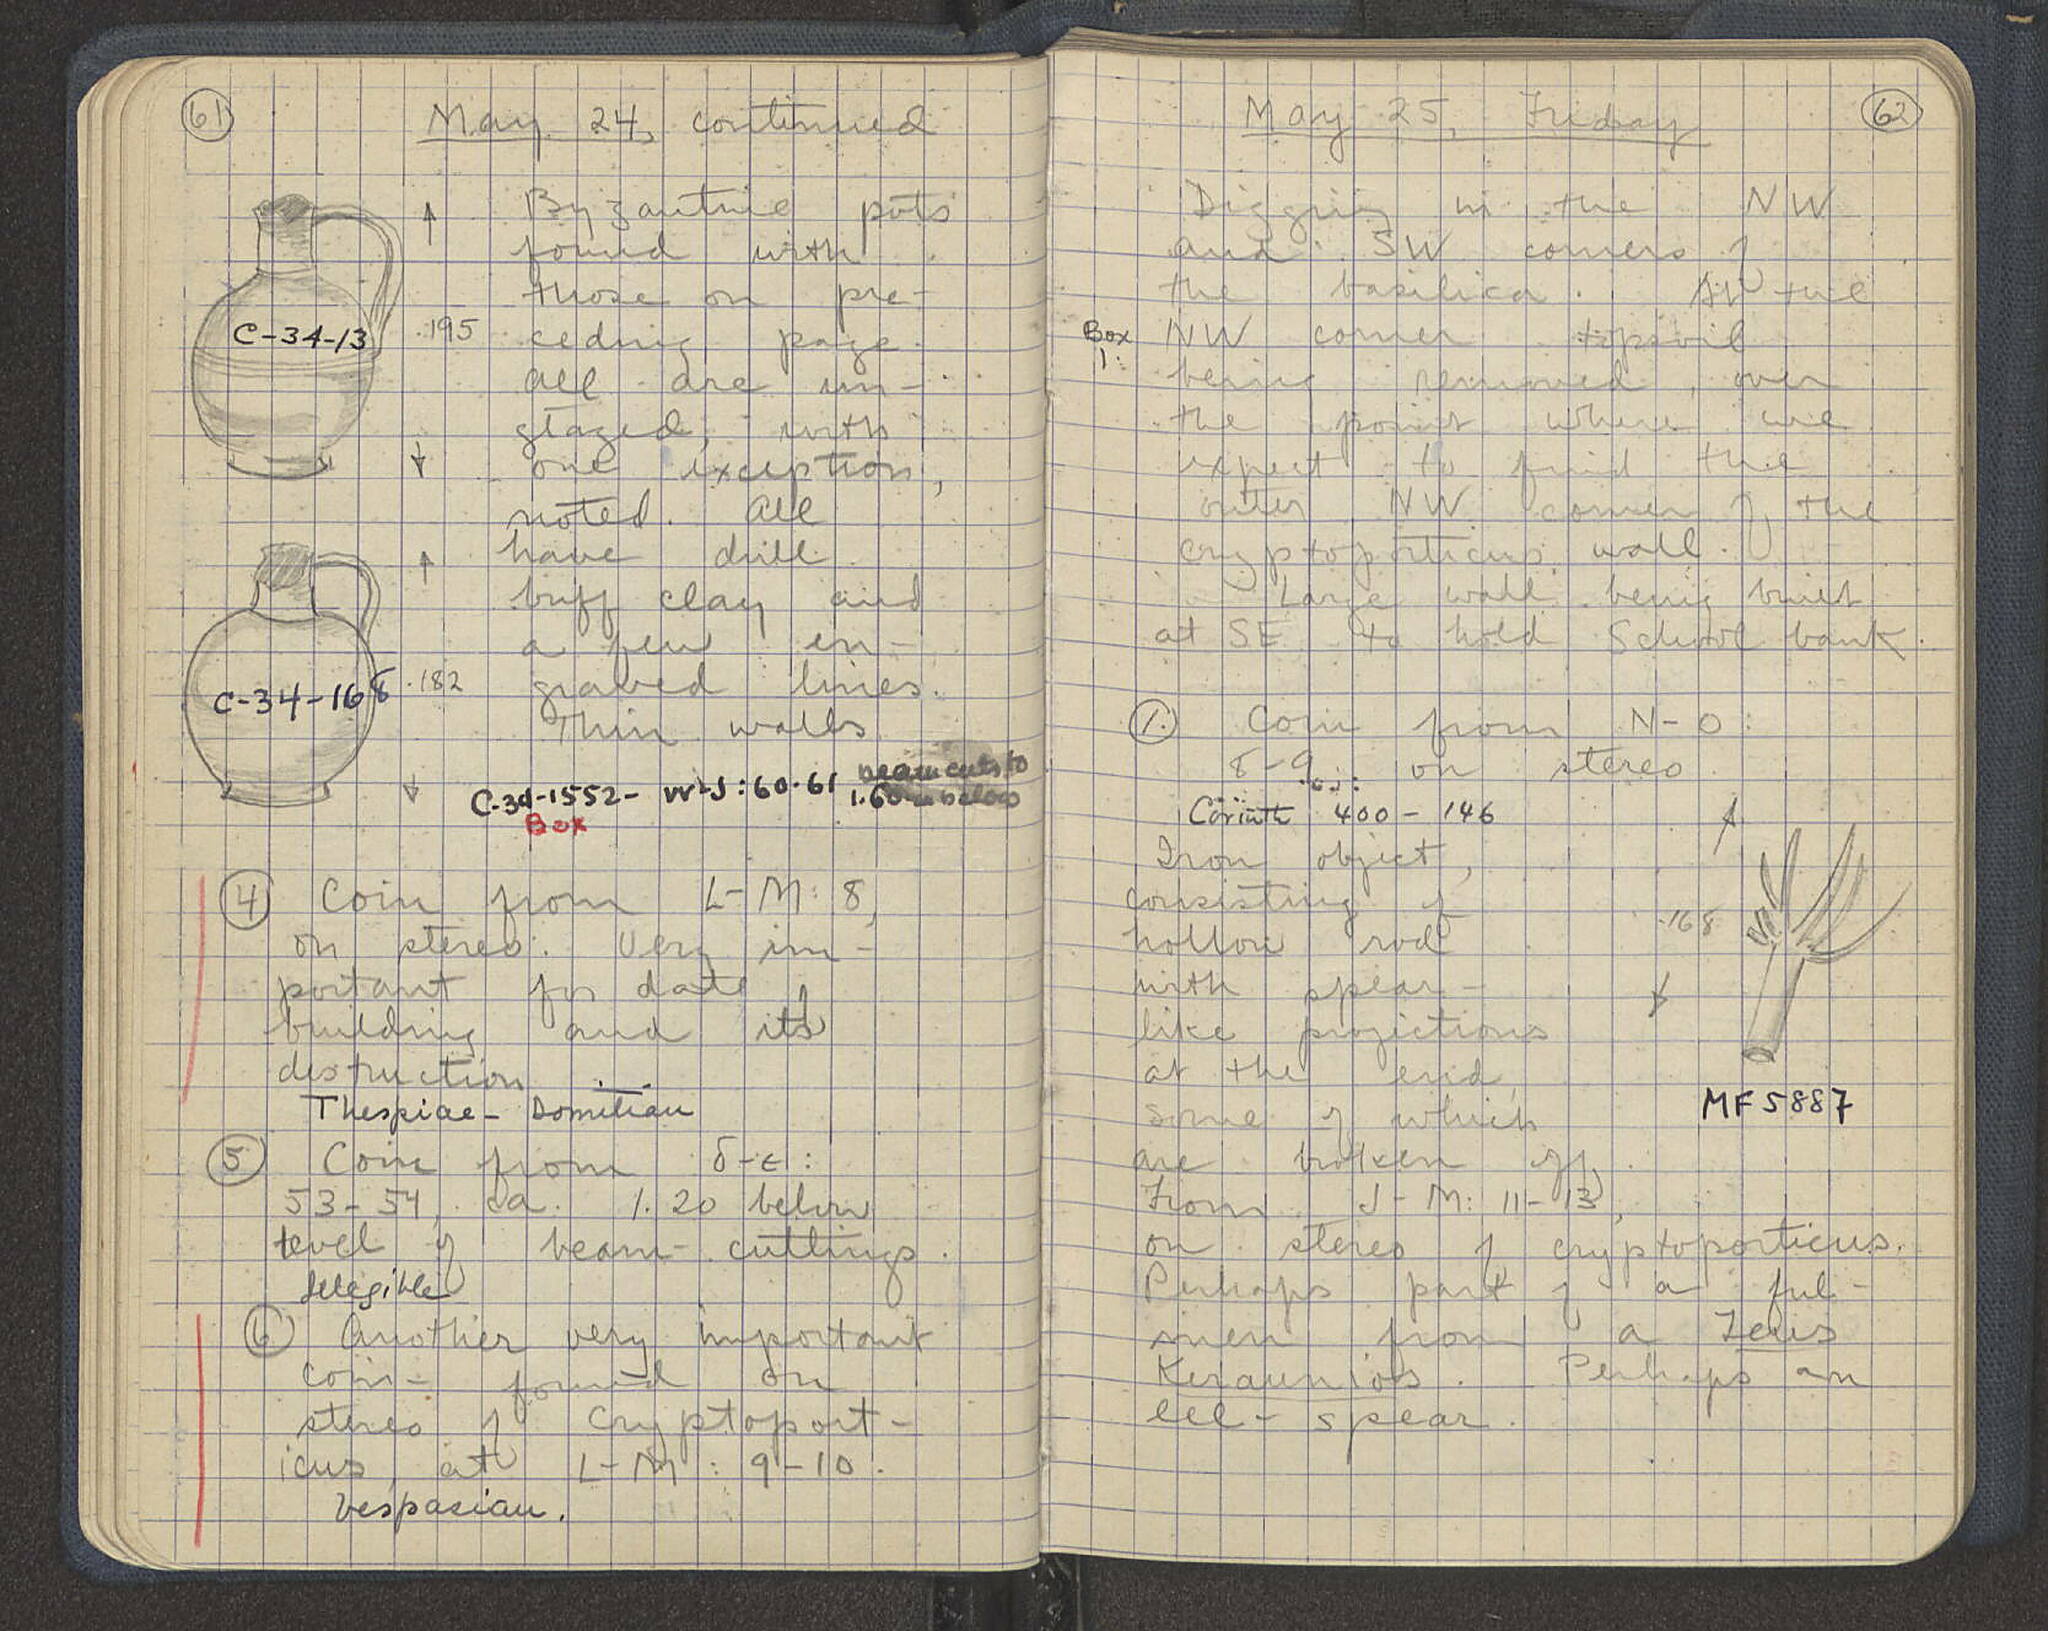 61
May 24, continued
Byzantine pots
found with
those on pre-
ceding page.
All are un-
glazed, with
one exception,
noted. All
have drill
buff clay and
a few en-
graved lines.
Thin walls
C-34-13
.195
C-34-168
.182
C-34-1552- W-J: 60-61 beam cuts to
1.60 m below
Box
4 Coin from L-M: 8,
on stereo. Very im-
portant for date of
building and its
destruction
Thespiae- Domitian
5 Coin from δ-ε:
53-54, ca. 1.20 below
level of beam-cuttings.
Illegible
6 Another very important
coin- found on
stereo of cryptoport-
icus, at L-M: 9-10.
Vespasian.
62
May 25, Friday
Digging in the NW
and SW corners of
the basilica. At the
Box
1:
NW corner topsoil
being removed, over
the point where we
expect to find the
outer NW corner of the
cryptoporticus wall.
Large wall being built
at SE to hold School bank.
1. Coin from N-O:
8-9, on stereo
Corinth 400-146
Iron object,
consisting of
hollow rod
with spear-
like projections
at the end,
some of which
are broken off.
From J-M: 11-13,
on stereo of cryptoporticus.
Perhaps part of a ful-
men from a Zeus
Keraunios. Perhaps an
eel-spear.
.168
MF 5887